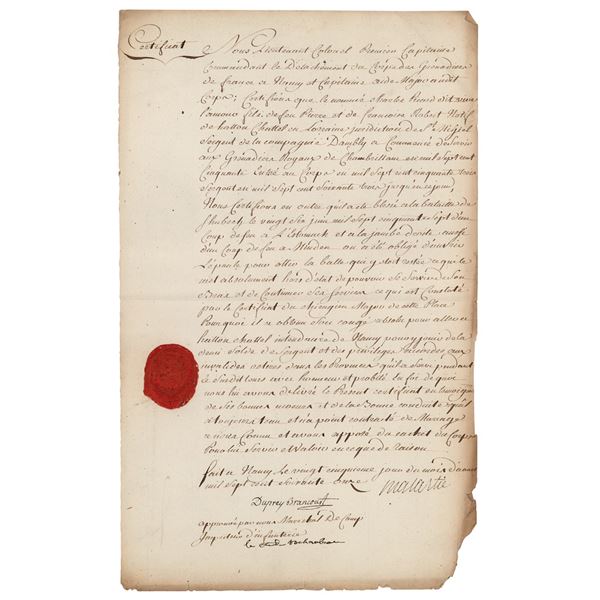 Certificat
Nous Lieutenant Colonel Premier Capitaine
Commandant le Détachement du Corps des Grenadiers
de france a Nancy et Capitaine aide Major audit
Corps; Certifions que le nommé Charles Picard dit
Lamour fils de feu Pierre et de francoise Robert Natif
de hatton Chattel en Lorraine jurisdiction de St Mihiel
Sergent de la compagnie Dambly a Commencé de Servir
aux Grenadiers Royaux de Chambrillant en mil Sept cent
Cinquante Entré au Corps en mil Sept cent cinquante trois
Sergent en mil Sept cent soixante trois jusqu'en ce jour,
Nous Certifions en outre qu'il a été blessé a la bataille de
le vingt Six juin mil Sept cinquante Sept d'un
Coup de feu a L'Estomack et a la jambe droite aussi
d'un Coup de feu a Minden ou a été obligé d'ouvrir
L'épaule pour otter la balle qui y étoit restée ce qui le
met absolument hors d'état de pouvoir se Servir de Son
Bras et de Continuer Ses Services ce qui est Constaté
par le Certificat du chirurgien Major de cette Place
Pourquoi il a obtenu Son congé absolu pour aller a
hatton chattel intendance de Nancy pour y jouir de la
demi Solde de Sergent et des privileges Accordés aux
invalides retirés dans les Provinces qu'il a Servi pendant
le Susdit tems avec honneur et probité En foi de quoi
nous lui avons délivré le Present certificat en temoignage
de Ses bonnes moeurs et de la Bonne conduite qu'il
a toujours tenu et n'a point contracté de Mariage
a nous Connu et avons apposé du cachet du Corps
Pour lui Servir et Valoir en ce que de raison
fait a Nancy Le vingt cinquieme jour du mois d'aoust
mil Sept cent Soixante onze
Malartic
Duprey Brancourt
approuvé par nous Marechal De Camp
Inspecteur d'infanterie
le